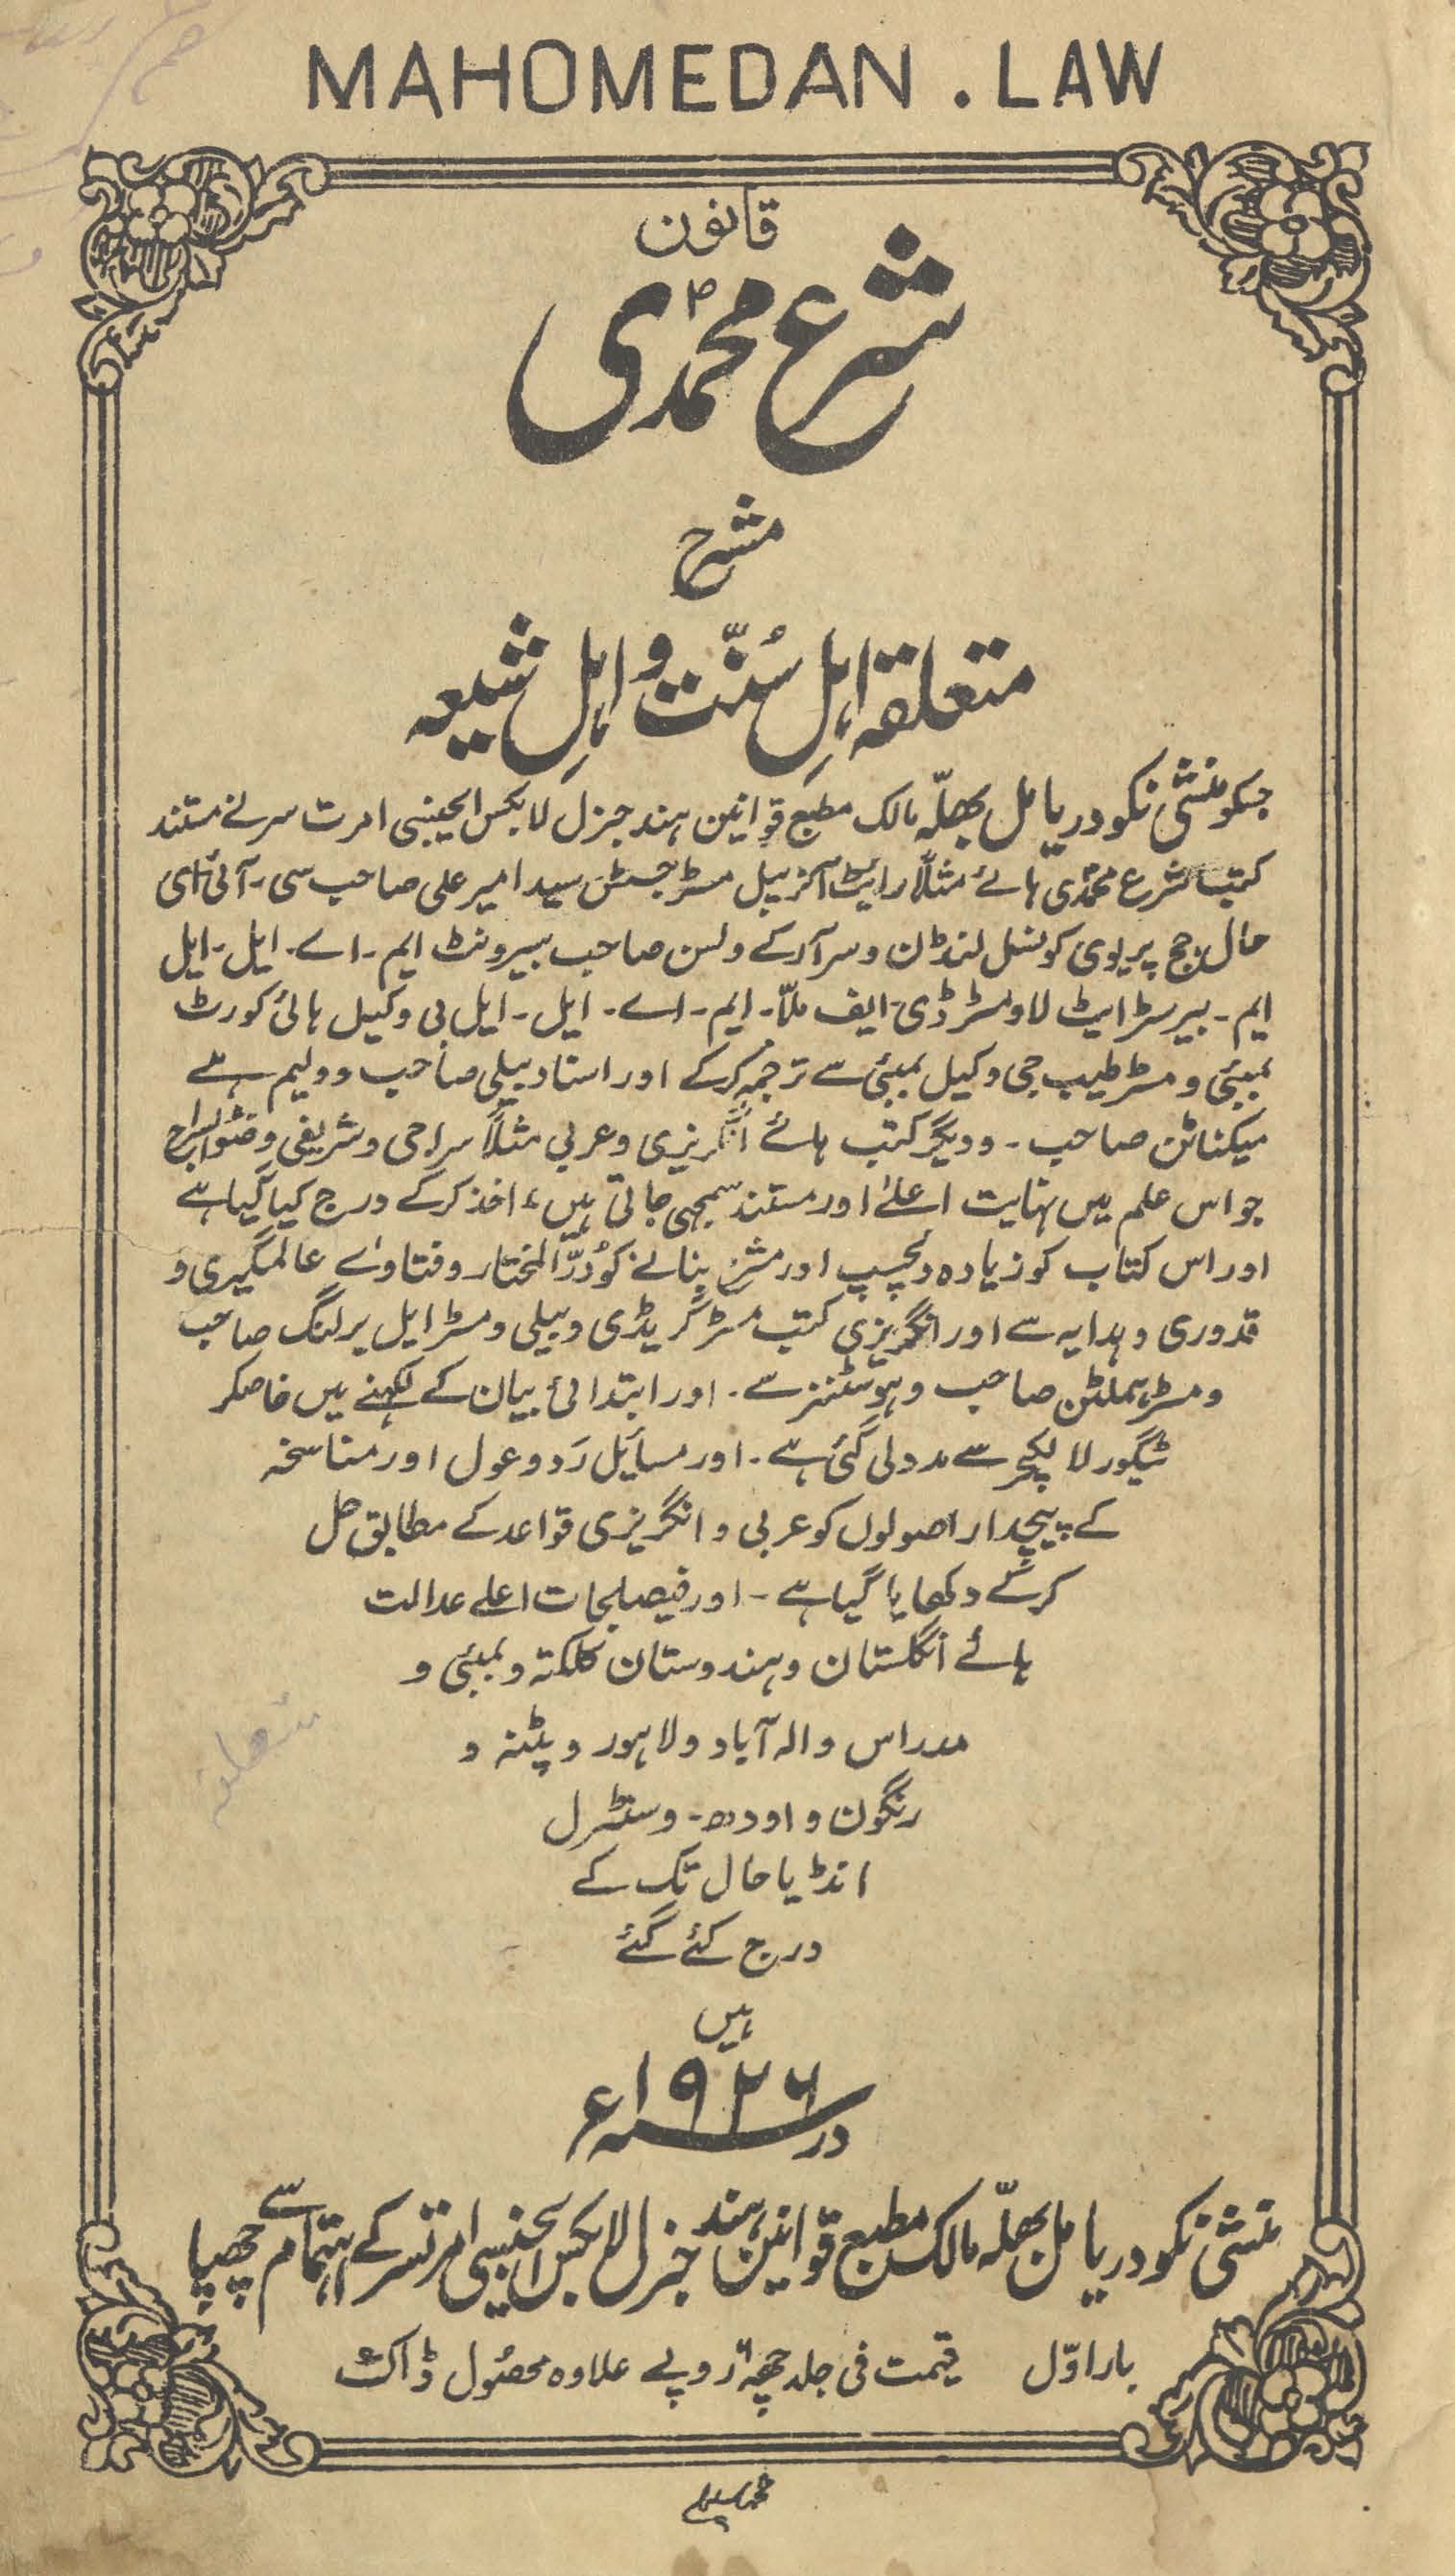 MAHOMEDAN . LAW
قانون
شرع محمدؐی
مشرح
متعلقہ اہلِ سُنّت و اہلِ شیعہ
جسکو منشی نکو دریا مل بھلّہ مالک مطبع قوانین ہند جنرل لا بکس ایجینسی امرت سر نے مستند
کتب شرع محمدؐی ہائے مثلاً رایٹ آنریبل مسٹر جسٹس سید امیر علی صاحب سی۔ آئی ای
حال جج پریوی کونسل لنڈن و سر آر کے ولسن صاحب بیرونٹ ایم۔ اے۔ ایل۔ ایل
ایم۔ بیرسٹر ایٹ لا و مسٹر ڈی ایف ملّا۔ ایم۔ اے۔ ایل۔ ایل بی وکیل ہائی کورٹ
بمبئی و مسٹر طیب جی وکیل بمبئی سے ترجمہ کر کے اور استاد بیلی صاحب و ولیم ہے
میکناٹن صاحب۔ و دیگر کتب ہائے انگریزی و عربی مثلاً سراجی و شریفی و ضوالسراج
جو اس علم میں نہایت اعلےٰ اور مستند سمجھی جاتی ہیں، اخذ کر کے درج کیا گیا ہے
اور اس کتاب کو زیادہ دلچسپ اور مشرح بنانے کو دُرّالمختار و فتاوےٰ عالمگیری و
قدوری و ہدایہ سے اور انگریزی کتب مسٹر گریڈی و بیلی و مسٹر ایل برلنگ صاحب
و مسٹر ہملٹن صاحب و ہوسٹنز سے۔ اور ابتدائی بیان کے لکھنے میں خاصکر
ٹیگور لا لیکچر سے مدد لی گئی ہے۔ اور مسایٔل رَد و عول اور مناسخہ
کے پیچیدار اصولوں کو عربی و انگریزی قواعد کے مطابق حل
کر کے دکھایا گیا ہے۔ اور فیصلجات اعلے عدالت
ہائے انگلستان و ہندوستان کلکتہ و بمبئی و
مدراس و الہ آباد و لاہور و پٹنہ و
رنگون و اودھ۔ و سنٹرل
انڈیا حال تک کے
درج کئے گئے
ہیں
در ۱۹۲۶ء
منشی نکو دریا مل بھلّہ مالک مطبع قوانین ہند جنرل لا بکس ایجنسی امرتسر کے اہتمام سے چھپا
بار اوّل قیمت فی جلد چھہ روپے علاوہ محصُول ڈاک